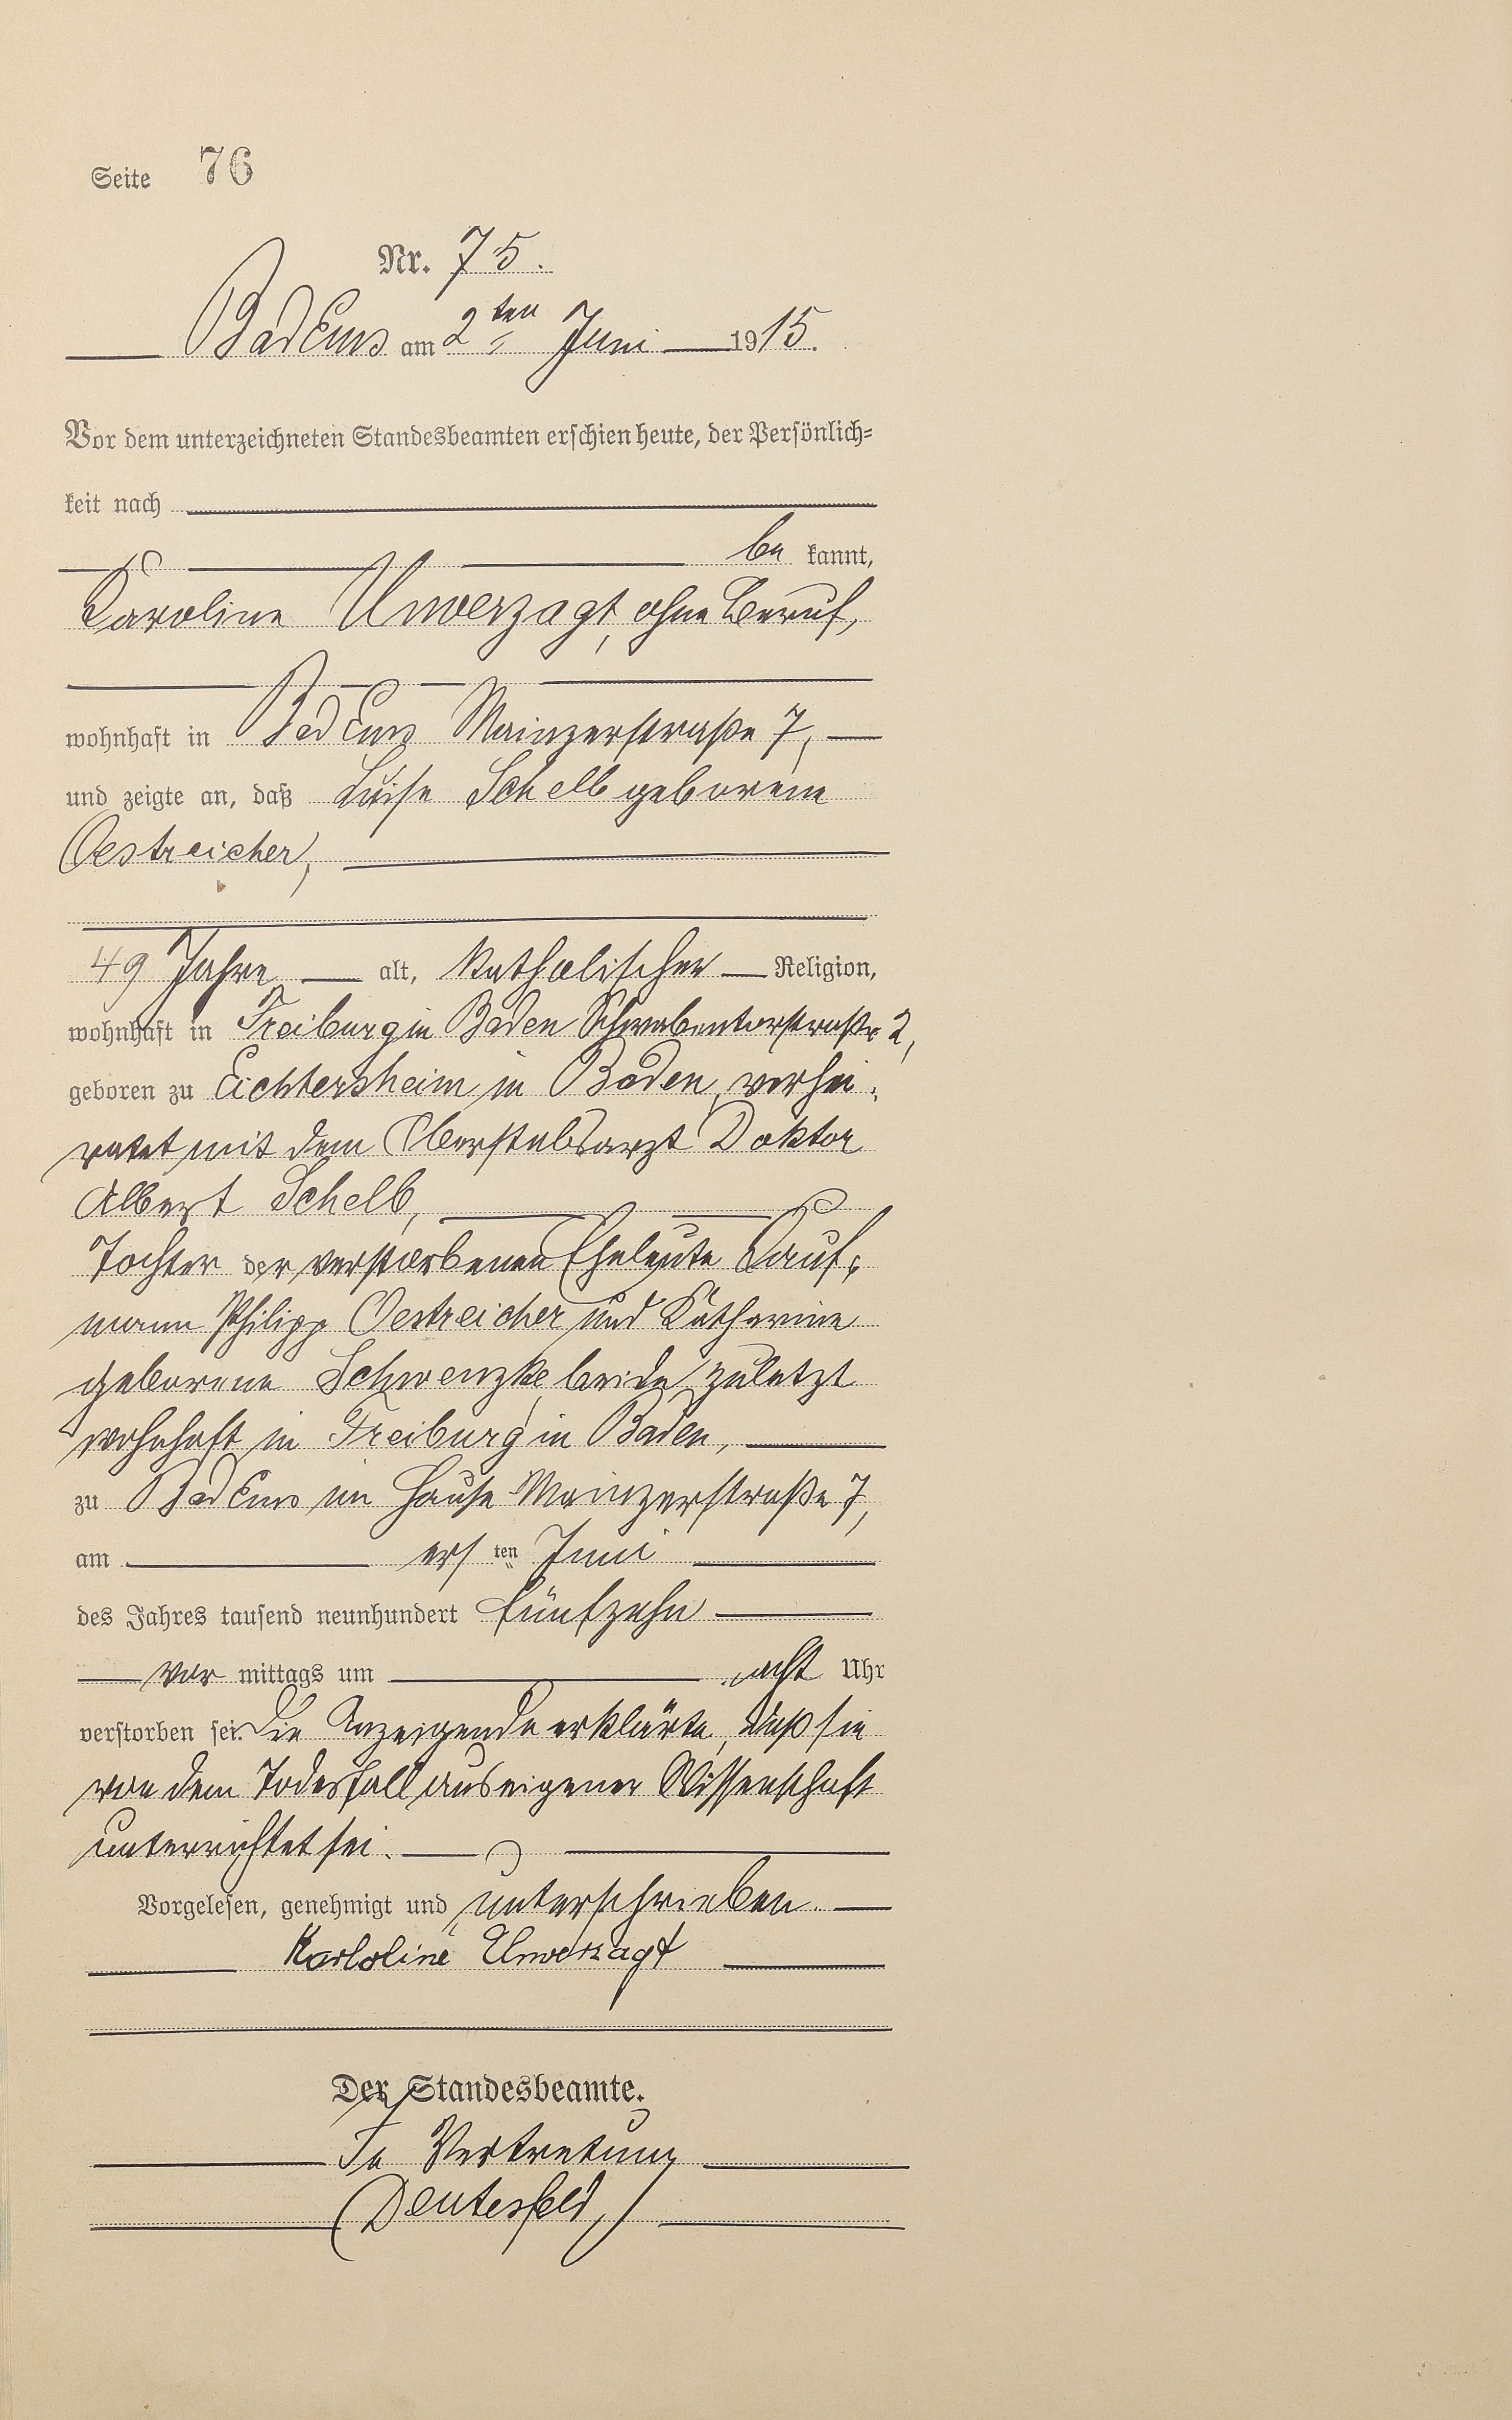 Seite 76
Nr. 75.
Bad Ems am 2ten Juni 1915.
Vor dem unterzeichneten Standesbeamten erschien heute, der Persönlich=
keit nach
be kannt,
Karoline Unverzagt, ohne Beruf,
wohnhaft in Bad Ems Mainzerstraße 7,
und zeigte an, daß Luise Schelb geborene
Oestreicher,
49 Jahre alt, katholischer Religion,
wohnhaft in Freiburg in Baden Schwabentorstraße 2,
geboren zu Eichtersheim in Baden, verhei=
ratet mit dem Oberstabsarzt Doktor
Albert Schelb,
Tochter der verstorbenen Eheleute Kauf=
mann Philipp Oestreicher und Katharine
geborene Schwenzke, beide zuletzt
wohnhaft in Freiburg in Baden,
zu Bad Ems im Hause Mainzerstraße 7,
am ersten Juni
des Jahres tausend neunhundert fünfzehn
vor mittags um acht Uhr
verstorben sei. Die Anzeigende erklärte, daß sie
von dem Todesfall aus eigener Wissenschaft
unterrichtet sei.
Vorgelesen, genehmigt und unterschrieben.
Karloline Unverzagt
Der Standesbeamte.
In Vertretung
(Deutesfeld)